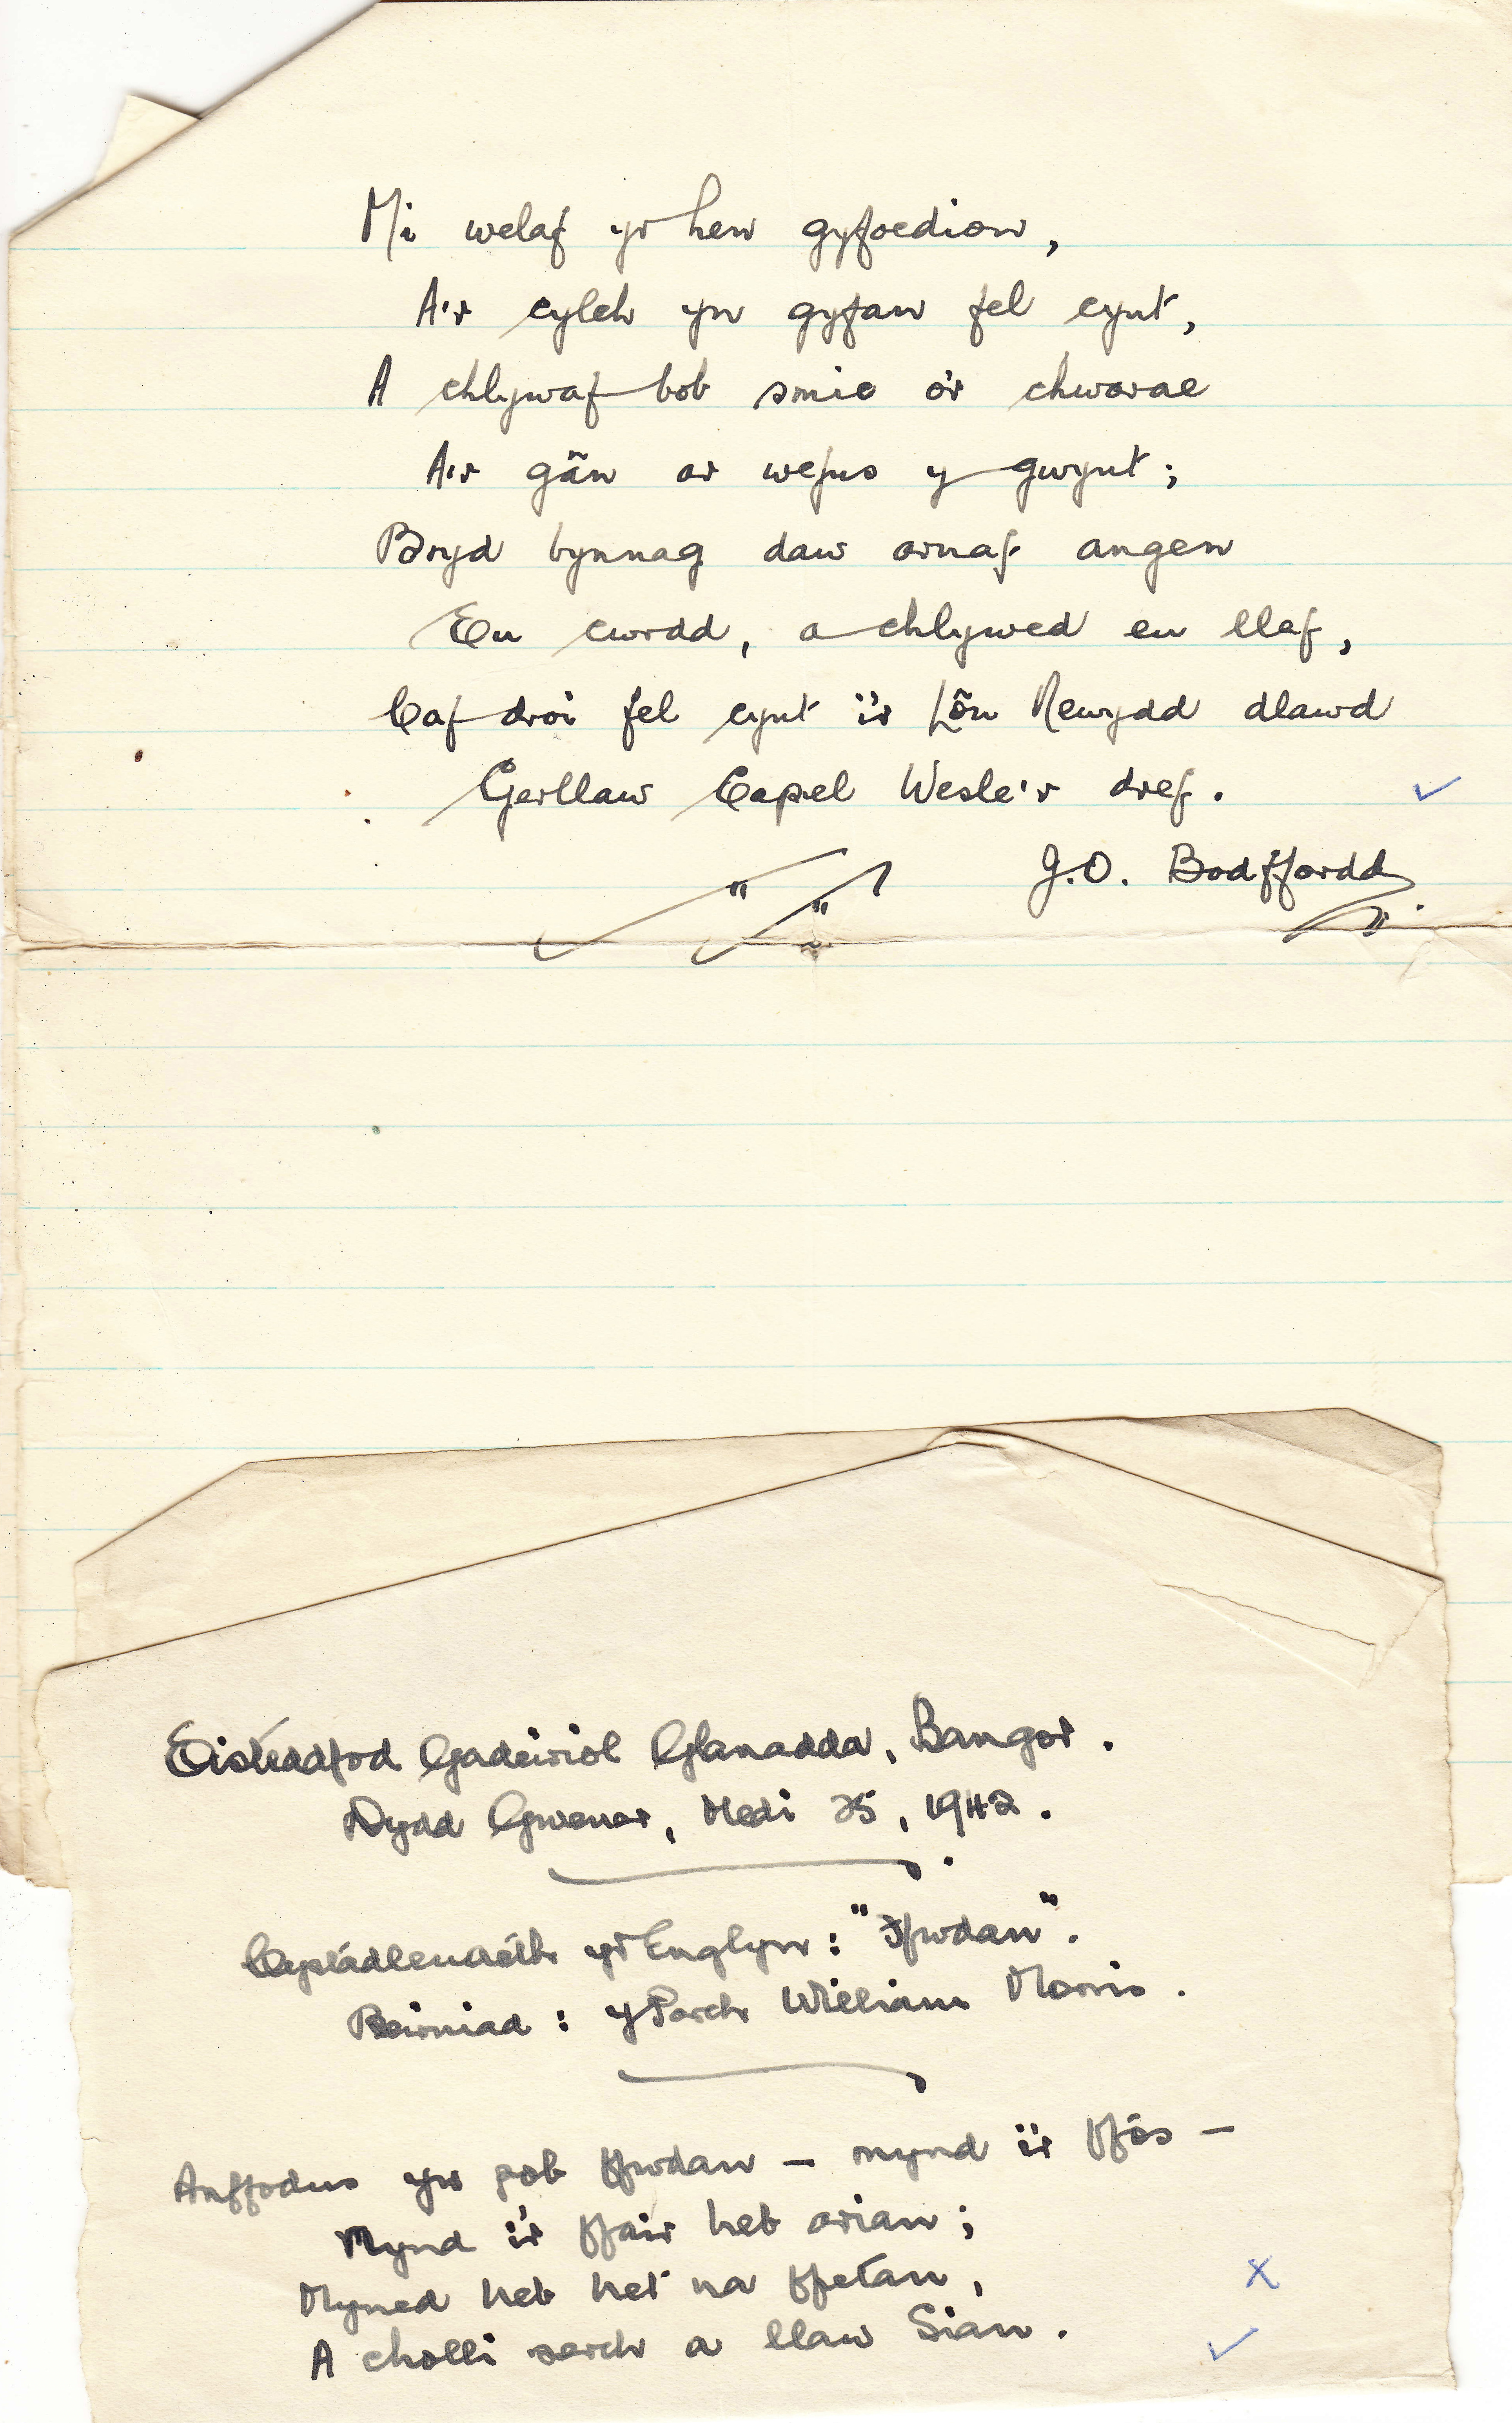 Mi welaf yr hen gyfoedion,
A'r cylch yn gyfan fel cynt,
A chlywaf bob smic o'r chwarae
A'r gân ar wefus y gwynt;
Bryd bynnag daw arnaf angen
Eu cwrdd, a chlywed eu llef,
Caf droi fel cynt i'r Lôn Newydd dlawd
Gerllaw Capel Wesle'r dref.
J.O. Bodffordd
Eisteddfod Gadeiriol Glanadda, Bangor.
Dydd Gwener, Medi 25, 1942.
Cystadleuaeth yr Englyn: "Ffwdan".
Beirniad: y Parch William Morris.
Anffodus yw pob ffwdan – mynd i'r ffos –
Mynd i'r ffair heb arian;
Myned heb het na ffetan,
A cholli serch a llaw Sian.